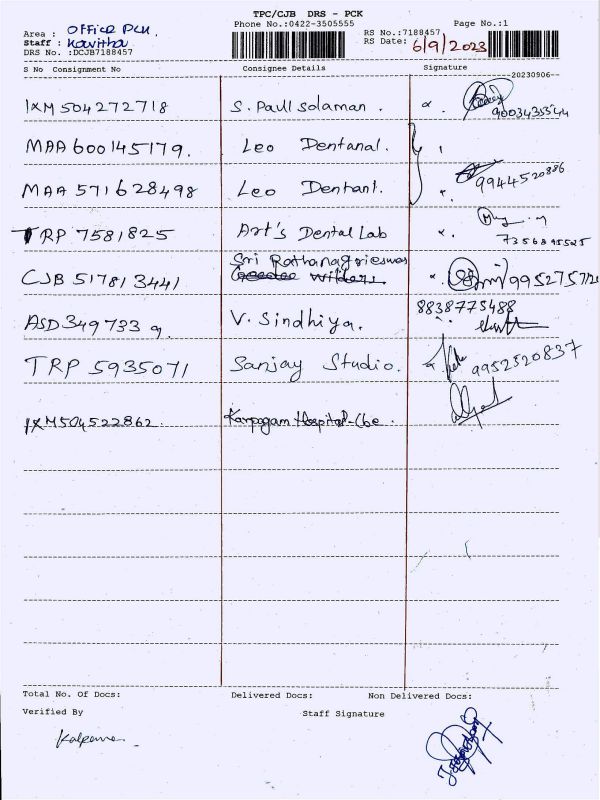 TPC/CJB DRS - PCK
Phone No.:0422-3505555
Page No.:1
Area : OFFice PCK.
Staff : Kavitha
DRS No. :DCJB7188457
RS No.:7188457
RS Date: 6/9/2023
S No Consignment No Consignee Details Signature
--20230906--
IXM 504272718 S. Paul Solaman . 9003435544
MAA 600145179. Leo Dentanal.
MAA 571628498 Leo Dentant. 9944520886
TRP 7581825 Art's Dental Lab 7356895525
Sri Rathanagrieswar
CJB 517813441 Wilders 9952757126
8838775488
ASD 349733 9. V. Sindhiya.
TRP 5935071 Sanjay Studio. 9952520837
IXM504522862. Karpagam Hospital-Cbe.
Total No. Of Docs: Delivered Docs: Non Delivered Docs:
Verified By Staff Signature
Kalpana